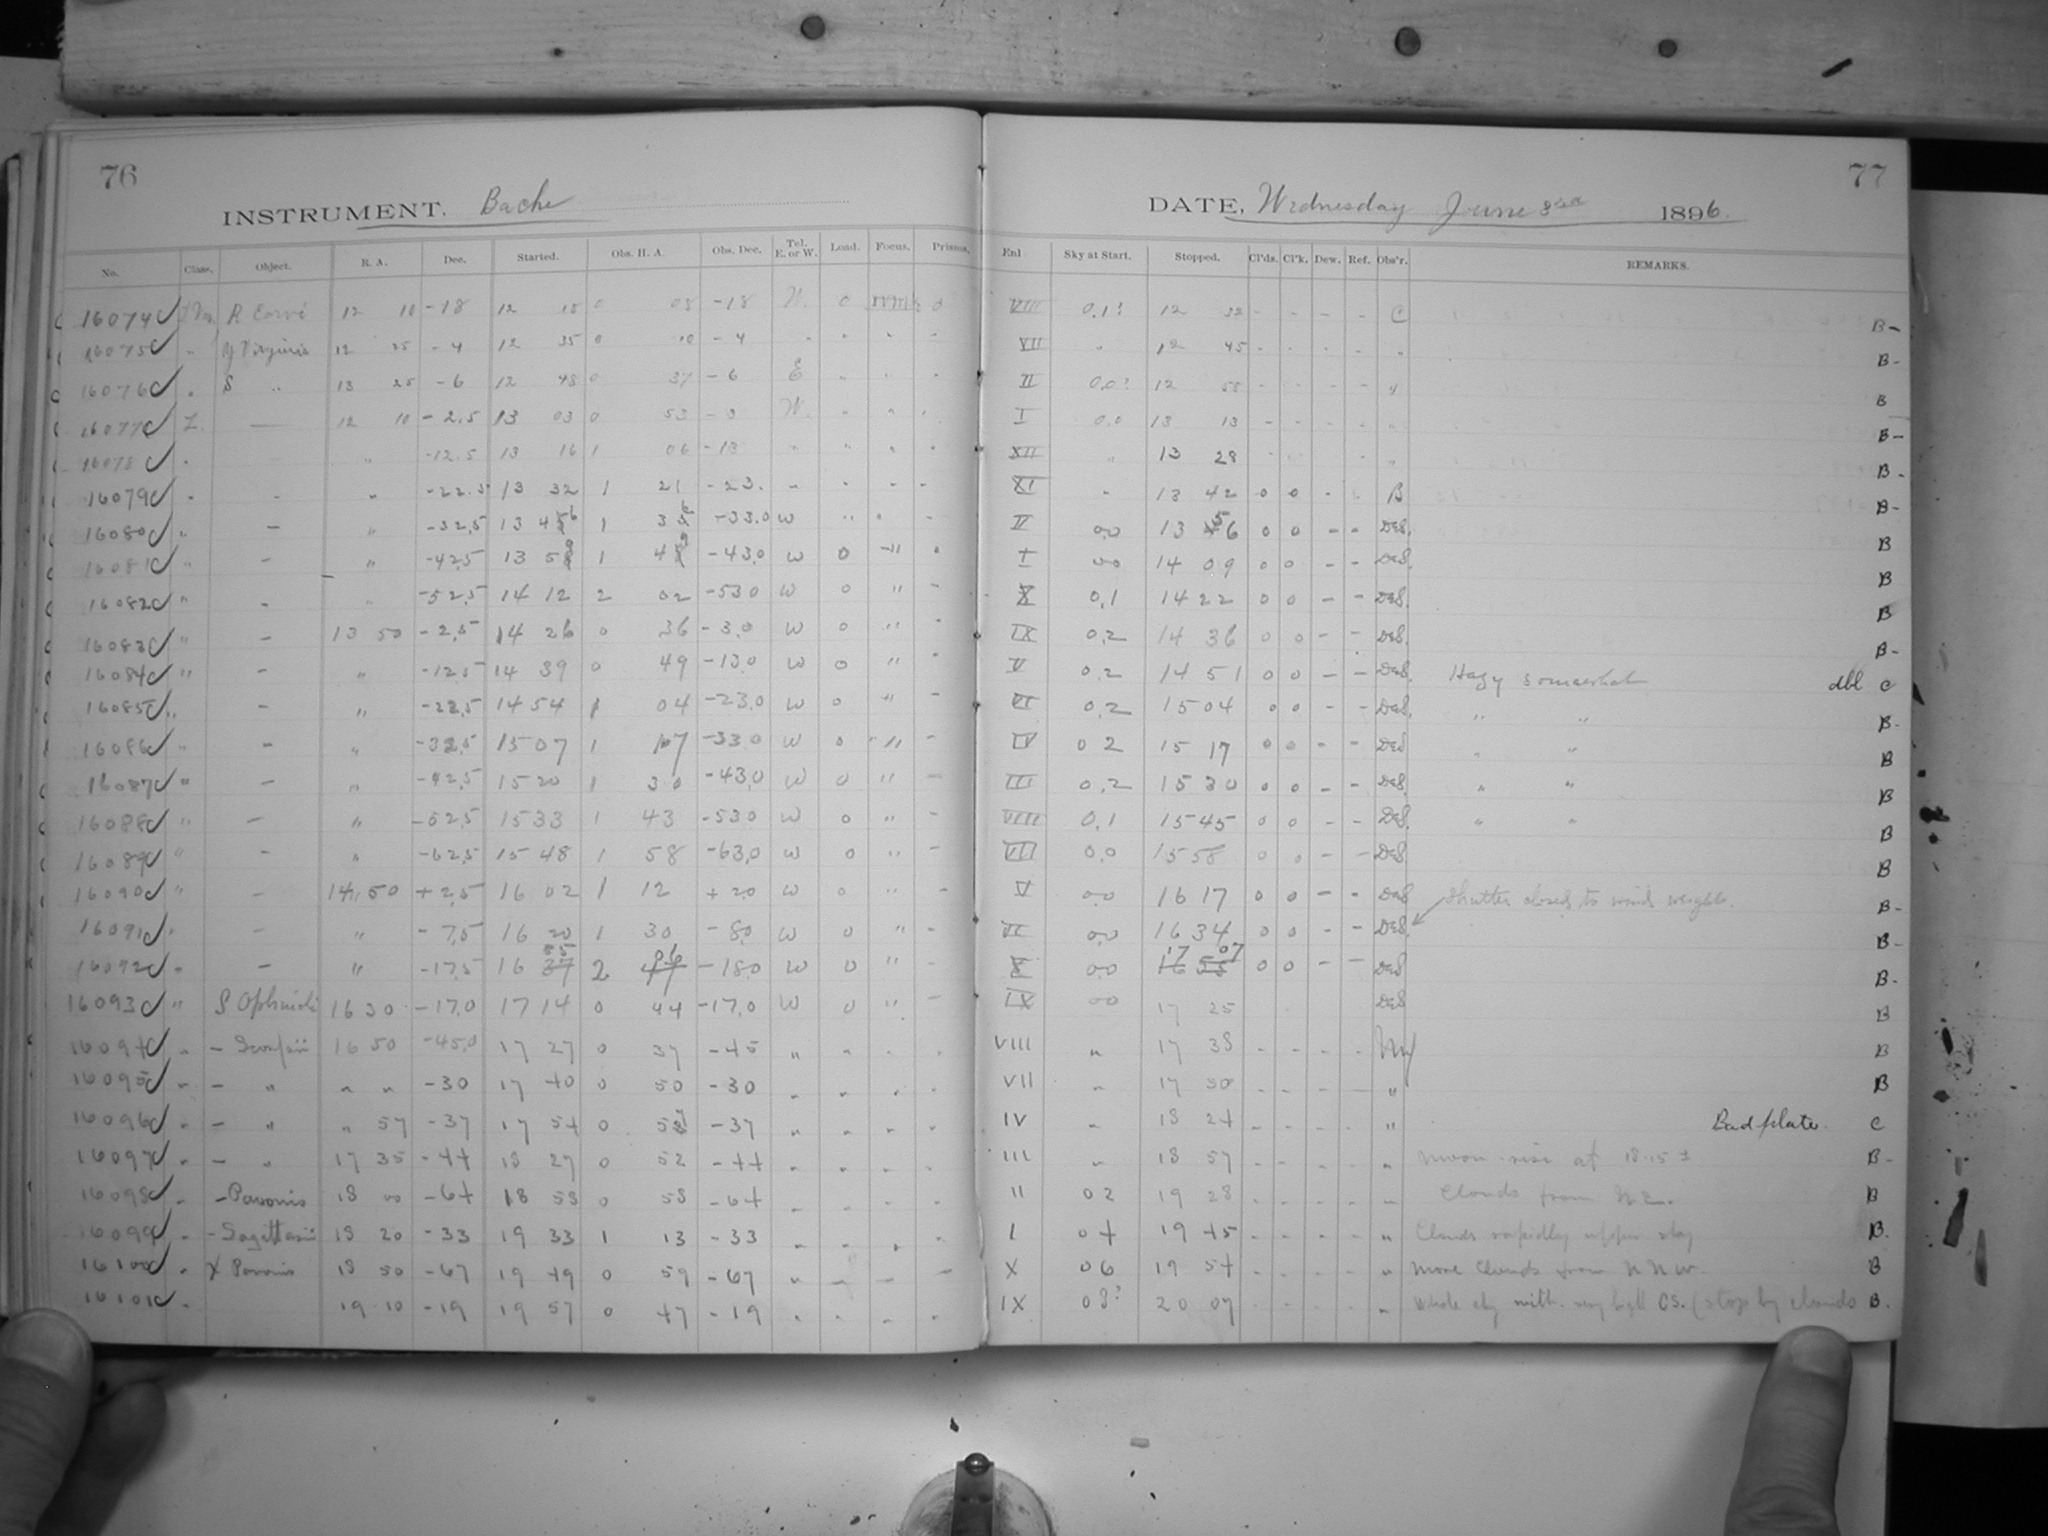 76
77
INSTRUMENT. Bache
DATE, Wednesday June 3rd 1896.
No. Class. Object. R. A. Dec. Started. Obs. H. A. Obs. Dec. Tel. E. or W. Load. Focus. Prisms. Enl Sky at Start. Stopped. Cl'ds. Cl'k. Dew. Ref. Obs'r. REMARKS.
16074 R Corvi 12 10 -18 12 15 0 05 -18 W. 0 VIII 0.1? 12 32 - - - - C B-
16075 " Y Virginis 12 35 - 4 12 35 0 10 - 4 " " " " VII " 12 45 - - - - " B-
16076 " S " 13 25 - 6 12 48 0 37 - 6 E " " " II 0.0? 12 58 - - - - " B
16077 — 12 10 - 2.5 13 03 0 53 - 3 W. " " " I 0.0 13 13 - - - - " B-
16078 " - " -12.5 13 16 1 06 -13 " " " " XII " 13 28 " B-
16079 " - " -22.5 13 32 1 21 -23. " " " " XI " 13 42 0 0 - - B B-
16080 " - " -32.5 13 46 1 36 -33.0 W " " V 0.0 13 56 0 0 - - DeS. B
16081 " - " -42.5 13 59 1 49 -43.0 W 0 " " I 0.0 14 09 0 0 - - DeS. B
16082 " - " -52.5 14 12 2 02 -53.0 W 0 " - X 0.1 14 22 0 0 - - DeS. B
16083 " - 13 50 - 2.5 14 26 0 36 - 3.0 W 0 " - IX 0.2 14 36 0 0 - - DeS. B-
16084 " - " -12.5 14 39 0 49 -13.0 W 0 " - V 0.2 14 51 0 0 - - DeS. Hazy somewhat dbl C
16085 " - " -22.5 14 54 1 04 -23.0 W 0 " - VI 0.2 15 04 0 0 - - DeS. " " B-
16086 " - " -32.5 15 07 1 17 -33.0 W 0 " - IV 0.2 15 17 0 0 - - DeS " " B
16087 " - " -42.5 15 20 1 30 -43.0 W 0 " - III 0.2 15 30 0 0 - - DeS. " " B
16088 " - " -52.5 15 33 1 43 -53.0 W 0 " - VIII 0.1 15 45 0 0 - - DeS. " " B
16089 " - " -62.5 15 48 1 58 -63.0 W 0 " - VII 0.0 15 58 0 0 - - DeS. B
16090 " - 14 50 + 2.5 16 02 1 12 + 2.0 W 0 " - V 0.0 16 17 0 0 - - DeS Shutter closed to wind weights. B-
16091 " - " - 7.5 16 20 1 30 - 8.0 W 0 " - VI 0.0 16 34 0 0 - - DeS. B-
55 06 17 07
16092 " - " -17.5 16 37 2 47 -18.0 W 0 " - X 0.0 16 55 0 0 - - DeS B-
16093 " S Ophiuchi 16 30 -17.0 17 14 0 44 -17.0 W 0 " - IX 0.0 17 25 DeS B
16094 " - Scorpii 16 50 -45.0 17 27 0 37 -45 " " " " VIII " 17 38 - - - - B
16095 " - " " " -30 17 40 0 50 -30 " " " " VII " 17 50 - - - - " B
16096 " - " " 57 -37 17 54 0 57 -37 " " " " IV " 18 24 - - - - " Bad plate. C
16097 " - " 17 35 -44 18 27 0 52 -44 " " " " III " 18 57 - - - - " moon-rise at 18.15 ± B-
16098 " - Pavonis 18 00 -64 18 58 0 58 -64 " " " " II 02 19 28 - - - - " Clouds from NE. B
16099 " - Sagittarii 18 20 -33 19 33 1 13 -33 " " " " I 04 19 45 - - - - " Clouds rapidly upper sky B.
16100 " X Pavonis 18 50 -67 19 49 0 59 -67 " " " " X 06 19 54 - - - - " more clouds from NNW. B
16101 " 19 10 -19 19 57 0 47 -19 " " " " IX 08? 20 07 - - - - " Whole sky with very high CS. (stop by clouds B.